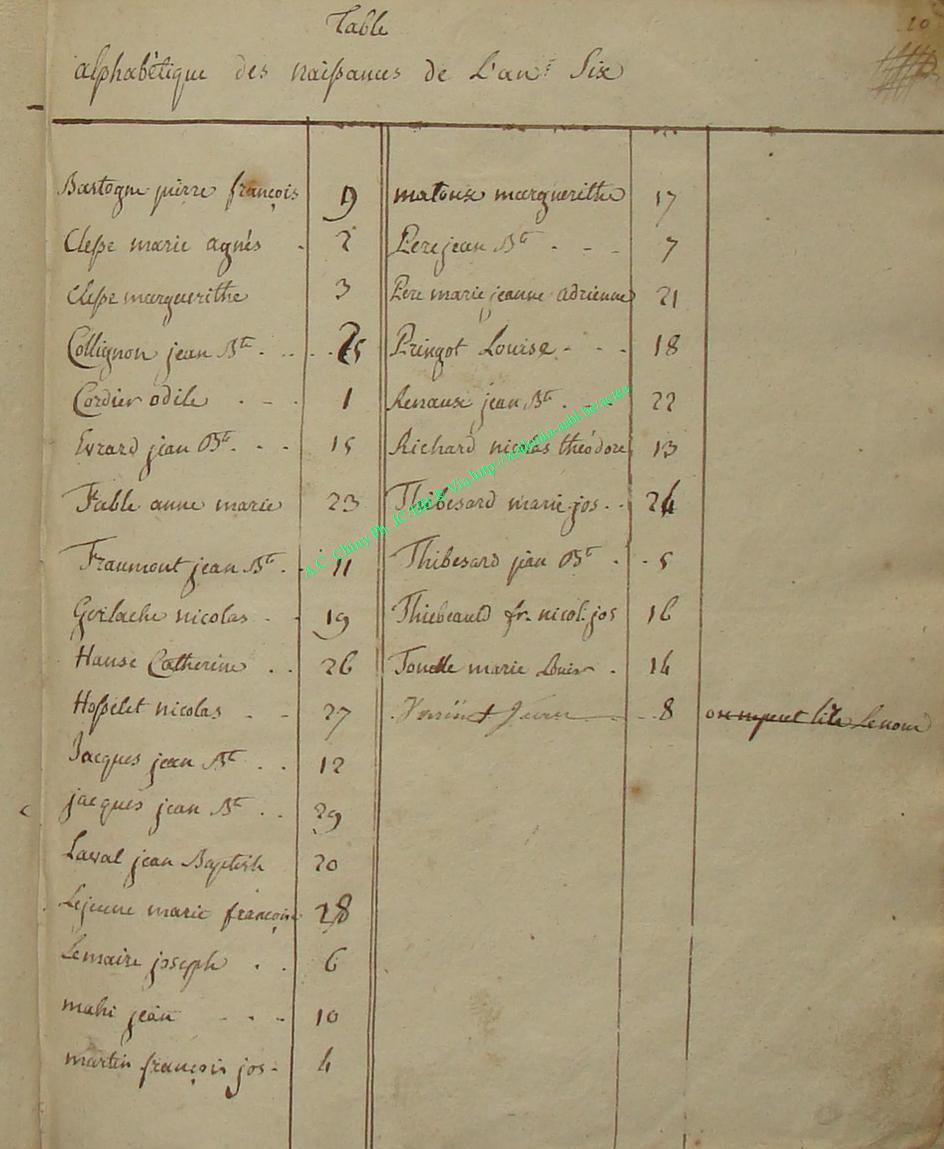 Table
20
alphabétique des naissances de L'an Six
Bastogne pierre françois 9
Clesse marie agnés 2
Clesse marguerithe 3
Collignon jean Bte 25
Cordier odile 1
Evrard jean Bte 15
Fable anne marie 23
Fraumont jean Bte 11
Gerlache nicolas 19
Hanse Catherine 26
Hosselet nicolas 27
Jacques jean Bte 12
jacques jean Bte 29
Laval jean Baptiste 20
Lejeune marie françoise 28
Lemaire joseph 6
mahi jean 10
martin françois jos 4
matoux marguerithe 17
Pere jean Bte 7
Pere marie jeanne adrienne 21
Pringot Louise 18
Renaux jean Bte 22
Richard nicolas théodore 13
Thibesard marie jos 24
Thibesard jean Bte 5
Thiebeauld fr. nicol. jos 16
marie Louis 14
8 on ne peut lire le nom
A.C. Chiny Ph. JC